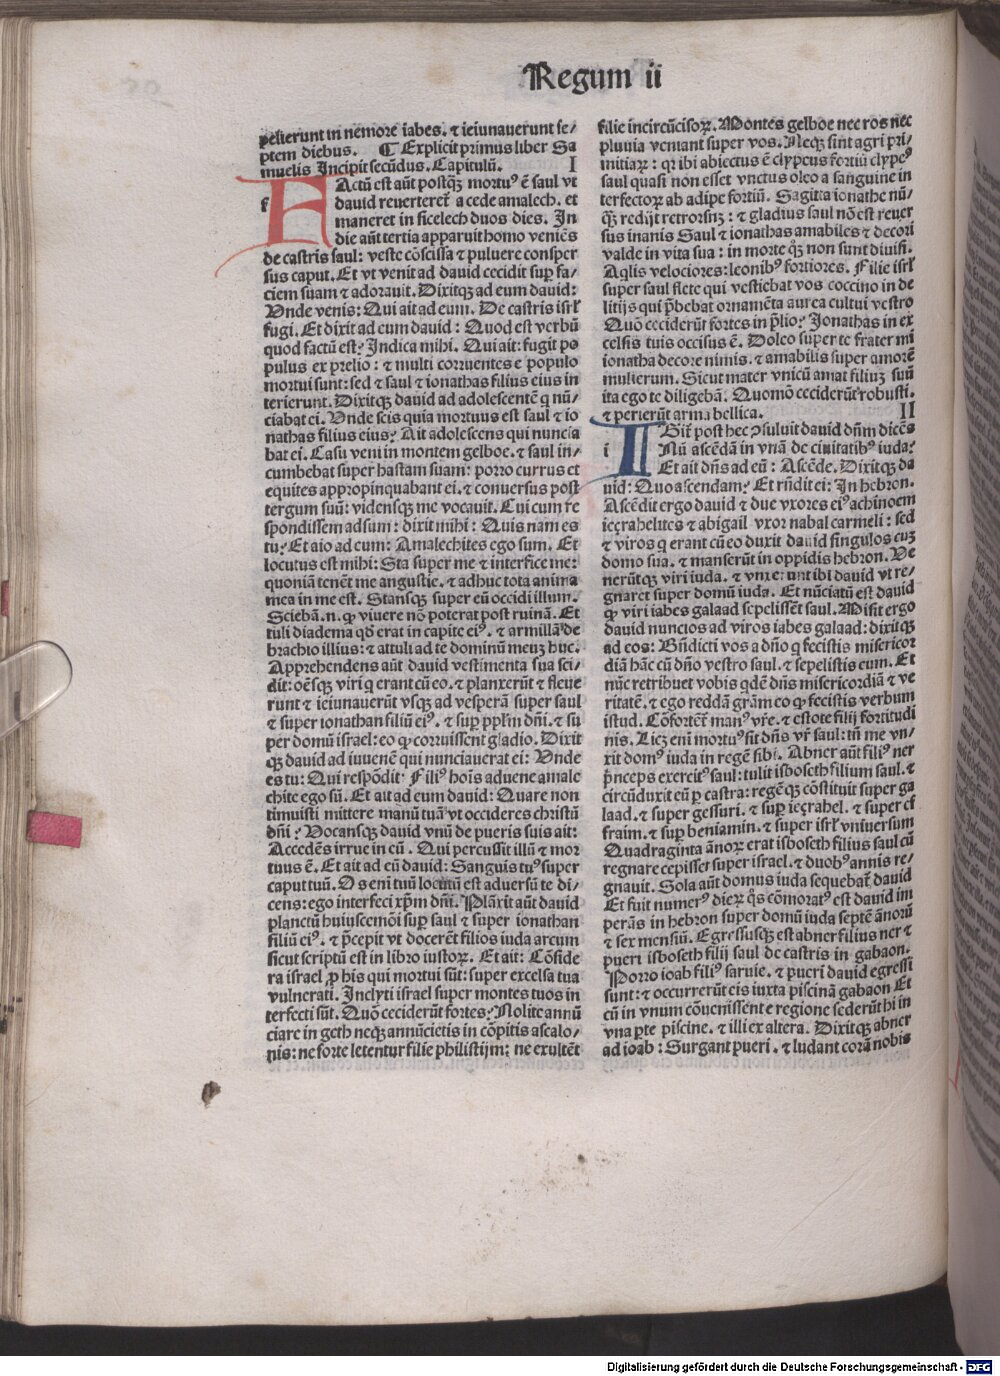 Regum ii
pelierunt in nemore iabes. ⁊ ieiunauerunt se/
ptem diebus. ¶ Explicit primus liber Sa
muelis Incipit secūdus. Capitulū. I
FActū est aūt postqȝ mortuꝰ ē saul vt
f dauid reuerteret̄ a cede amalech. et
maneret in sicelech duos dies. In
die aūt tertia apparuit homo veniēs
de castris saul: veste cōscissa ⁊ puluere consper
sus caput. Et vt venit ad dauid cecidit suꝑ fa/
ciem suam ⁊ adorauit. Dixitqȝ ad eum dauid:
Vnde venis: Qui ait ad eum. De castris isrł
fugi. Et dixit ad eum dauid: Quod est verbū
quod factū est? Indica mihi. Qui ait: fugit po
pulus ex prelio: ⁊ multi corruentes e populo
mortui sunt: sed ⁊ saul ⁊ ionathas filius eius in
terierunt. Dixitqȝ dauid ad adolescentē q nū/
ciabat ei. Vnde scis quia mortuus est saul ⁊ io
nathas filius eius? Ait adolescens qui nuncia
bat ei. Casu veni in montem gelboe. ⁊ saul in/
cumbebat super hastam suam: porro currus et
equites appropinquabant ei. ⁊ conuersus post
tergum suū: vidensqȝ me vocauit. Cui cum re
spondissem adsum: dixit mihi: Quis nam es
tu? Et aio ad eum: Amalechites ego sum. Et
locutus est mihi: Sta super me ⁊ interfice me:
quoniā tenēt me angustie. ⁊ adhuc tota anima
mea in me est. Stansqȝ super eū occidi illum.
Sciebā.n. ꝙ viuere nō poterat post ruinā. Et
tuli diadema qđ erat in capite eiꝰ. ⁊ armillā de
brachio illius: ⁊ attuli ad te dominū meuȝ huc.
Apprehendens aūt dauid vestimenta sua sci/
dit: oēsqȝ viri q erant cū eo. ⁊ planxerūt ⁊ fleue
runt ⁊ ieiunauerūt vsqȝ ad vesperā super saul
⁊ super ionathan filiū eiꝰ. ⁊ suꝑ ppłm dn̄i. ⁊ su
per domū israel: eo ꝙ corruissent gladio. Dixit
qȝ dauid ad iuuenē qui nunciauerat ei: Vnde
es tu: Qui respōdit: Filiꝰ hoīs aduene amale
chite ego sū. Et ait ad eum dauid: Quare non
timuisti mittere manū tuā vt occideres christū
dn̄i? Vocansqȝ dauid vnū de pueris suis ait:
Accedēs irrue in eū. Qui percussit illū ⁊ mor
tuus ē. Et ait ad eū dauid: Sanguis tuꝰ super
caput tuū. Os eni tuū locutū est aduersū te di/
cens: ego interfeci xp̄m dn̄i. Plāxit aūt dauid
planctū huiuscemōi suꝑ saul ⁊ super ionathan
filiū eiꝰ. ⁊ p̄cepit vt docerēt filios iuda arcum
sicut scriptū est in libro iustoꝝ. Et ait: Cōside
ra israel ꝓ his qui mortui sūt: super excelsa tua
vulnerati. Inclyti israel super montes tuos in
terfecti sūt. Quō ceciderūt fortes? Nolite annū
ciare in geth neqȝ annūcietis in cōpitis ascalo/
nis: ne forte letentur filie philistijm: ne exultēt
filie incircūcisoꝝ. Montes gelboe nec ros nec
pluuia veniant super vos. Neqȝ sint agri pri/
mitiaꝝ: qꝛ ibi abiectus ē clypeus fortiū clypeꝰ
saul quasi non esset vnctus oleo a sanguine in
terfectoꝝ ab adipe fortiū. Sagitta ionathe nū/
qȝ redijt retrorsuȝ: ⁊ gladius saul nō est reuer
sus inanis Saul ⁊ ionathas amabiles ⁊ decori
valde in vita sua: in morte qȝ non sunt diuisi.
Aqlis velociores: leonibꝰ fortiores. Filie isrł
super saul flete qui vestiebat vos coccino in de
litijs qui p̄bebat ornamēta aurea cultui vestro
Quō ceciderūt fortes in p̄lio? Jonathas in ex
celsis tuis occisus ē. Doleo super te frater mi
ionatha decore nimis. ⁊ amabilis super amorē
mulierum. Sicut mater vnicū amat filiuȝ suū
ita ego te diligebā. Quomō ceciderūt robusti.
⁊ perierūt arma bellica. II
IGit̄ post hec ꝯsuluit dauid dn̄m dicēs
i Nū ascēdā in vnā de ciuitatibꝰ iuda?
Et ait dn̄s ad eū: Ascēde. Dixitqȝ da
uid: Quo ascendam? Et rn̄dit ei: In hebron.
Ascēdit ergo dauid ⁊ due vxores eiꝰ achinoem
ieçrahelites ⁊ abigail vxor nabal carmeli: sed
⁊ viros q erant cū eo duxit dauid singulos cuȝ
domo sua. ⁊ manserūt in oppidis hebron. Ve
nerūtqȝ viri iuda. ⁊ vnxerunt ibi dauid vt re/
gnaret super domū iuda. Et nūciatū est dauid
ꝙ viri iabes galaad sepelissēt saul. Misit ergo
dauid nuncios ad viros iabes galaad: dixitqȝ
ad eos: Bn̄dicti vos a dn̄o q fecistis misericor
diā hāc cū dn̄o vestro saul. ⁊ sepelistis eum. Et
nūc retribuet vobis qdē dn̄s misericordiā ⁊ ve
ritatē. ⁊ ego reddā grām eo ꝙ fecistis verbum
istud. Cōfortēt̄ manꝰ vr̄e. ⁊ estote filij fortitudi
nis. Licȝ eni mortuꝰ sit dn̄s vr̄ saul: tn̄ me vn/
xit domꝰ iuda in regē sibi. Abner aūt filiꝰ ner
p̄nceps exercitꝰ saul: tulit isboseth filium saul. ⁊
circūduxit eū ꝑ castra: regēqȝ cōstituit super ga
laad. ⁊ super gessuri. ⁊ suꝑ ieçrahel. ⁊ super ef
fraim. ⁊ suꝑ beniamin. ⁊ super isrł vniuersum
Quadraginta ānoꝝ erat isboseth filius saul cū
regnare cepisset super israel. ⁊ duobꝰ annis re/
gnauit. Sola aūt domus iuda sequebat̄ dauid
Et fuit numerꝰ dieꝝ q̊s cōmoratꝰ est dauid im
perās in hebron super domū iuda septē ānorū
⁊ sex mensiū. Egressusqȝ est abner filius ner ⁊
pueri isboseth filij saul de castris in gabaon.
Porro ioab filiꝰ saruie. ⁊ pueri dauid egressi
sunt: ⁊ occurrerūt eis iuxta piscinā gabaon Et
cū in vnum cōuenissent e regione sederūt hi in
vna pte piscine. ⁊ illi ex altera. Dixitqȝ abner
ad ioab: Surgant pueri. ⁊ ludant corā nobis
Digitalisierung gefördert durch die Deutsche Forschungsgemeinschaft - DFG